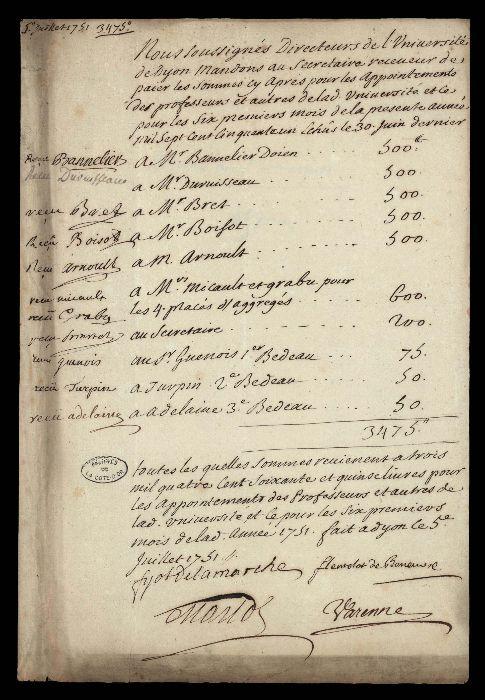 5e Juillet 1751 3475tt
Nous soussignés Directeurs de L'Université
de Dyon Mandons au Secretaire receveur de
paier les sommes cy Apres pour les Appointements
des professeurs et autres de lad. Université et ce
pour les Six premiers mois de la presente année
mil Sept Cent Cinquante un Echus le 30. Juin dernier
Receu Bannelier a Mr. Bannelier Doien --- 500.tt
Receu Duruisseau a Mr Duruisseau --- 500.
receu Bret a Mr Bret --- 500.
Receu Boisot a Mr. Boisot --- 500.
Receu Arnoult a M. Arnoult --- 500.
receu micault a Mrs Micault et grabu pour
receu Grabu les 4. places d'aggregés --- 600.
receu au Secretaire --- 200.
receu guenois au Sr Guenois 1er Bedeau --- 75.
receu Turpin a Turpin 2e Bedeau --- 50.
receu adelaine a Adelaine 3e Bedeau --- 50.
3475tt
ARCHIVES
DE
LA COTE-D'OR
toutes les quelles sommes reviennent a trois
mil quatre cent soixante et quinse livres pour
les Appointements des Professeurs et autres de
lad. Université et ce pour les Six premiers
mois de lad. Année 1751. fait a dyon le 5e
Juillet 1751.
fyot Delamarche
Varenne